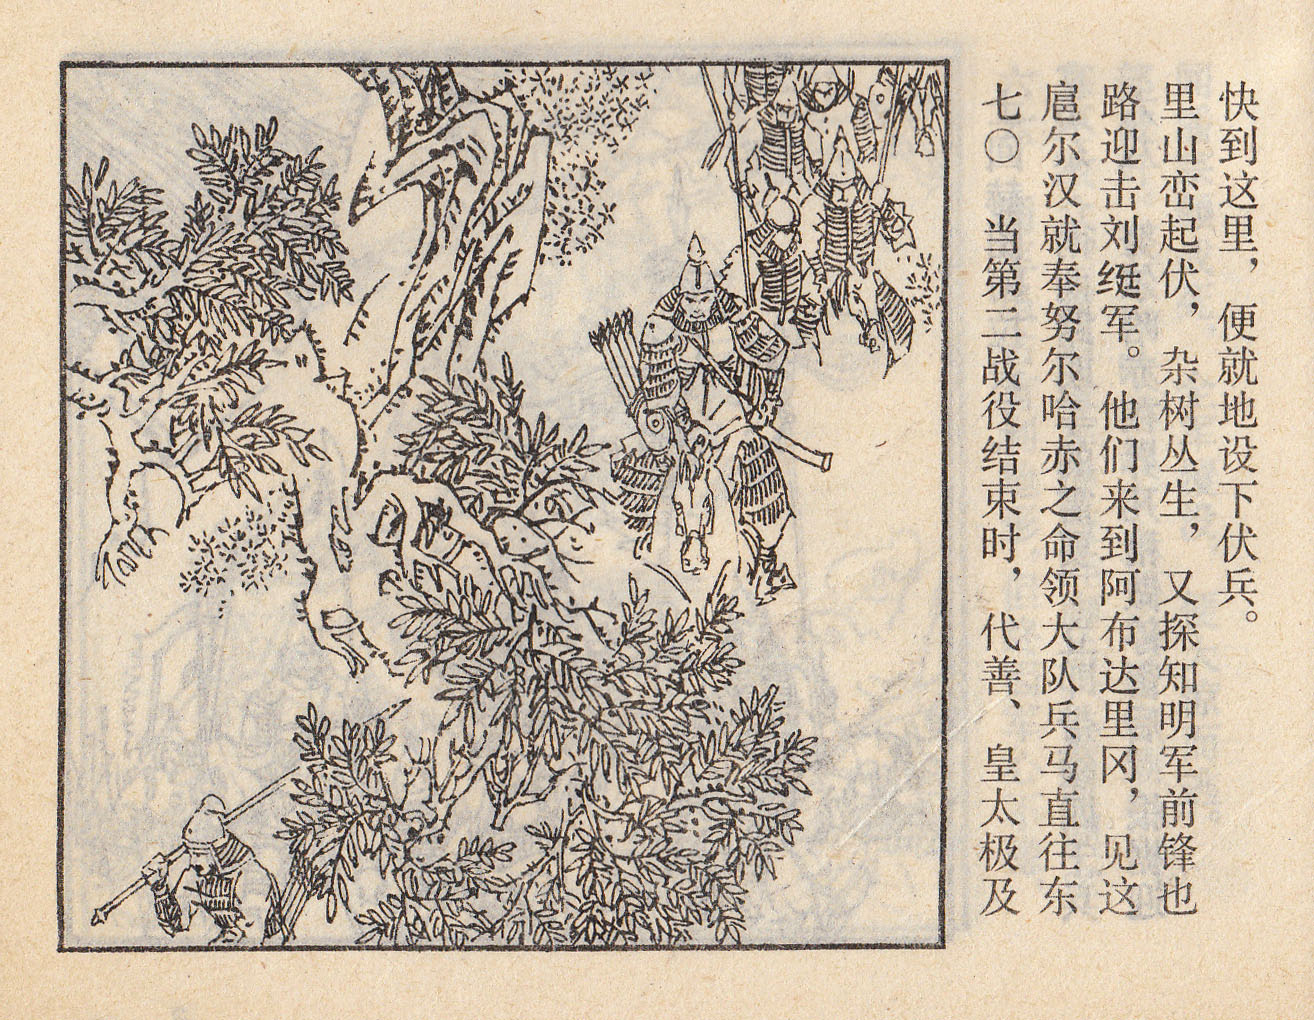 七〇　当第二战役结束时，代善、皇太极及
扈尔汉就奉努尔哈赤之命领大队兵马直往东
路迎击刘𬘩军。他们来到阿布达里冈，见这
里山峦起伏，杂树丛生，又探知明军前锋也
快到这里，便就地设下伏兵。